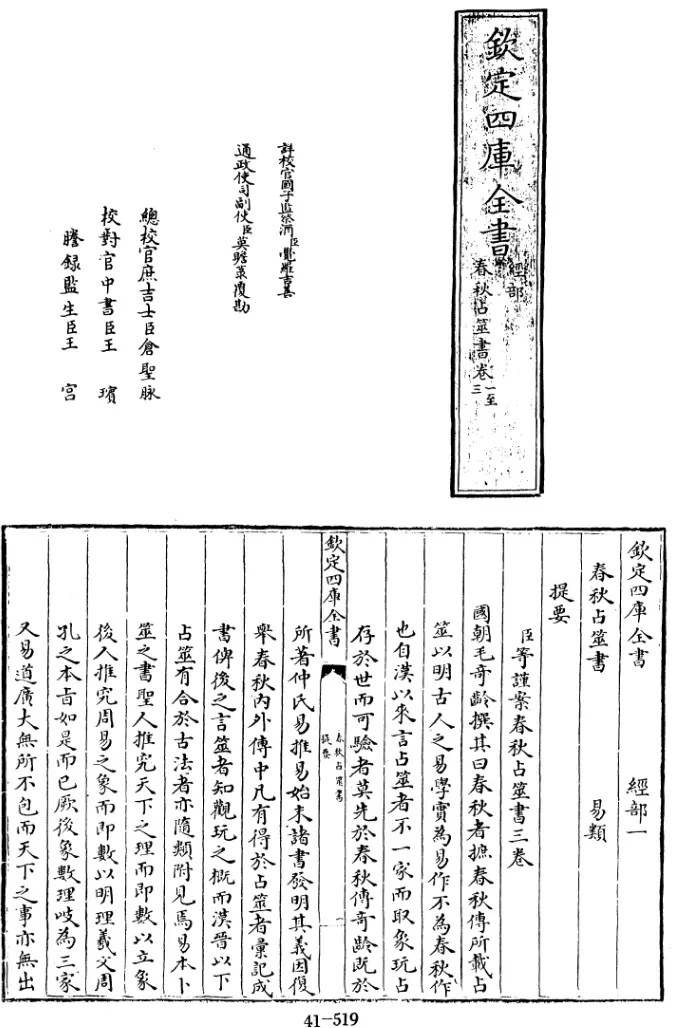 欽定四庫全書
經部
春秋占筮書卷一至三
詳校官國子監祭酒臣覺羅吉善
通政使司副使臣莫瞻菉覆勘
總校官庶吉士臣倉聖脉
校對官中書臣王 璸
謄錄監生臣王 宫
欽定四庫全書 經部一
春秋占筮書 易類
提要
臣等謹案春秋占筮書三卷
國朝毛奇齡撰其曰春秋者摭春秋傳所載占
筮以明古人之易學實為易作不為春秋作
也自漢以來言占筮者不一家而取象玩占
存於世而可驗者莫先於春秋傳奇齡既於
欽定四庫全書
春秋占筮書
提要
一
所著仲氏易推易始末諸書發明其義因復
舉春秋内外傳中凡有得於占筮者彙記成
書俾後之言筮者知觀玩之概而漢晉以下
占筮有合於古法者亦隨類附見焉易本卜
筮之書聖人推究天下之理而即數以立象
後人推究周易之象而即數以明理羲文周
孔之本旨如是而已厥後象數理岐為三家
又易道廣大無所不包而天下之事亦無出
41-519